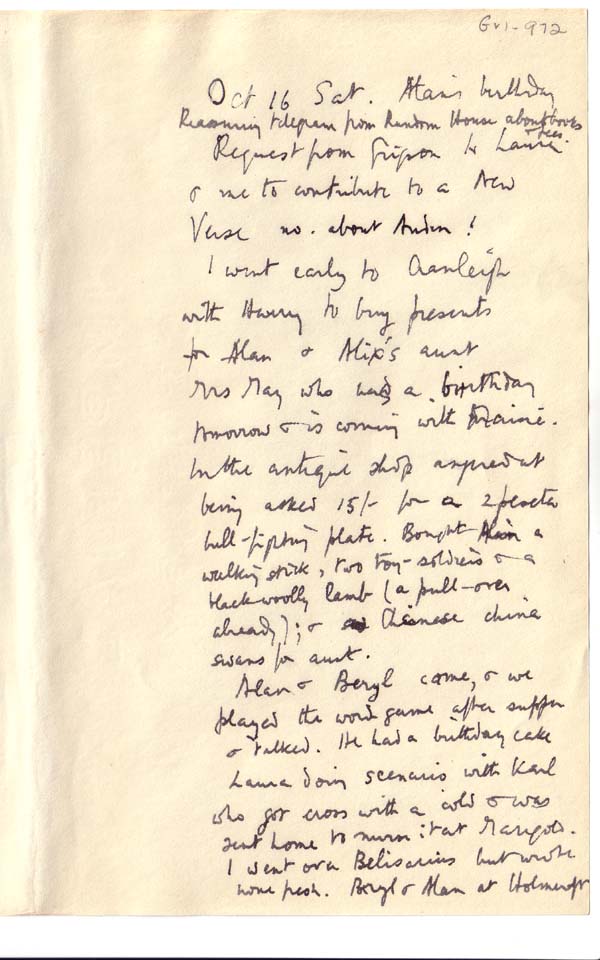 Gv1-972
Oct 16 Sat. Alan's birthday
Reassuring telegram from Random House about books
Request from Grigson to Laura
& me to contribute to a New
Verse no. about Auden!
I went early to Cranleigh
with Harry to buy presents
for Alan & Alix's aunt
Mrs May who has a birthday
tomorrow & is coming with
In the antique shop at
being asked 15/- for a 2 peseta
bull-fighting plate. Bought Alan a
walking stick, two toy-soldiers & a
black woolly lamb (a pull-over
already); & Chinese china
swans for aunt.
Alan & Beryl came, & we
played the word game after supper
& talked. He had a birthday cake
Laura doing scenario with Karl
who got cross with a cold & was
sent home to nurse it at Marigolds.
I went over Belisarius but wrote
none fresh. Beryl & Alan at Holmcroft